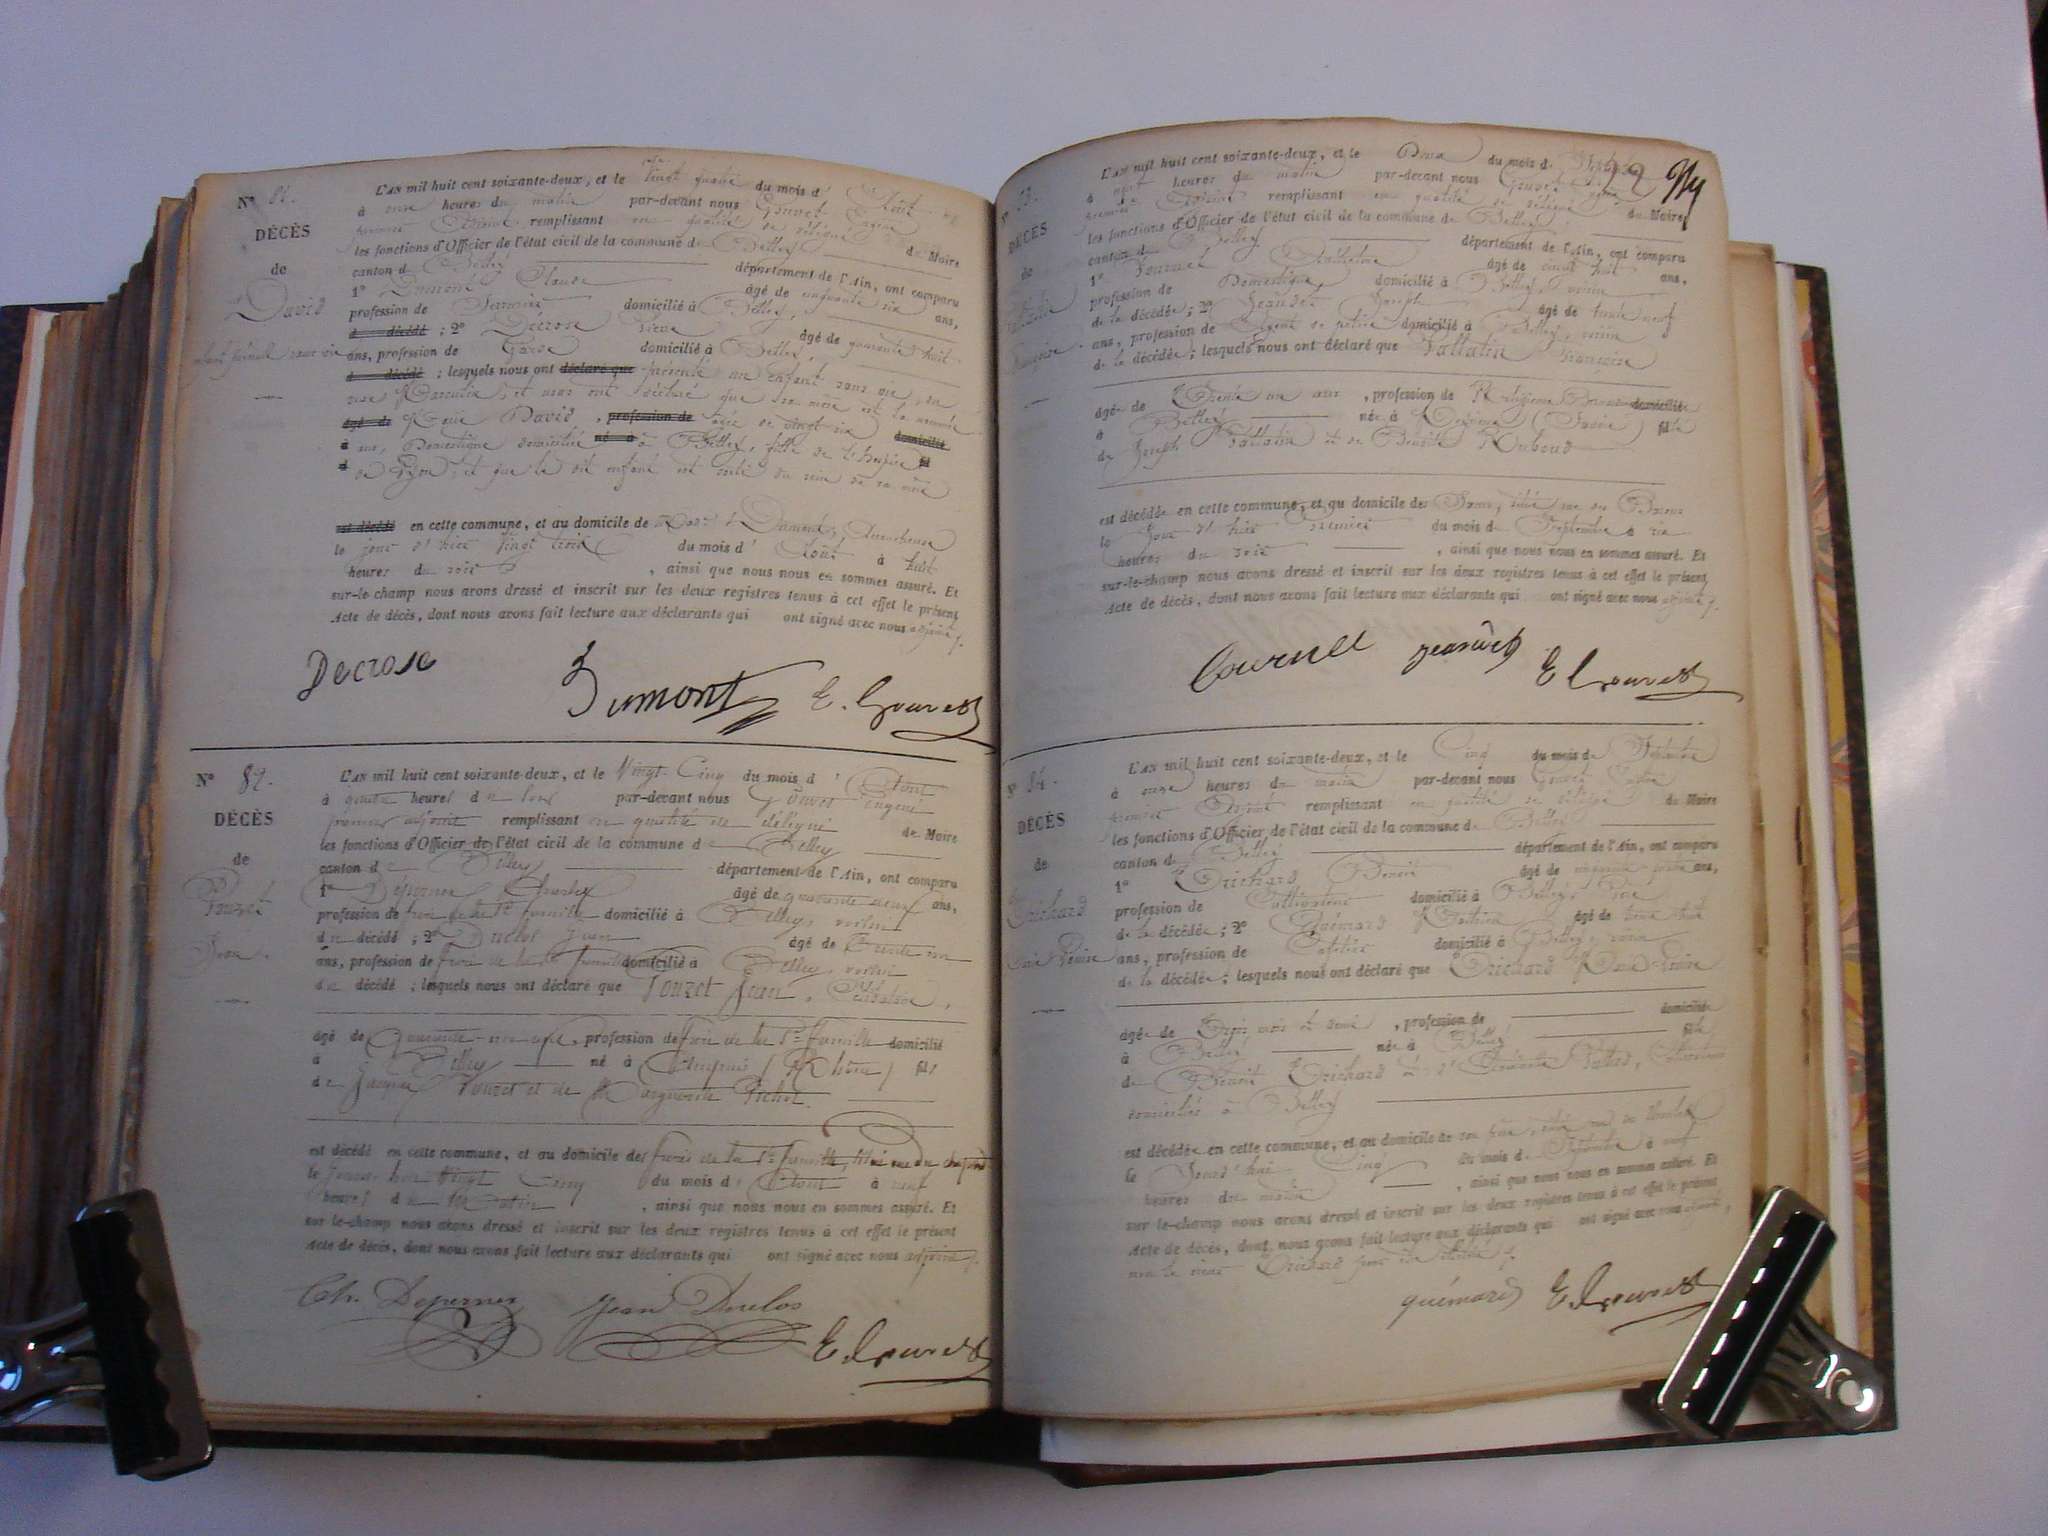 N° 81.
DÉCÈS
de
David
enfant présenté sans vie
L'AN mil huit cent soixante-deux, et le Vingt quatre du mois d' Août
à onze heures du matin par-devant nous Gouvet Eugène
premier Adjoint remplissant en qualité de délégué du Maire
les fonctions d'Officier de l'état civil de la commune de Belley
canton de Belley département de l'Ain, ont comparu
1° Dumont Claude âgé de cinquante six ans,
profession de domicilié à Belley,
d décédé ; 2° Décrose âgé de quarante huit
ans, profession de Garde domicilié à Belley
d décédé ; lesquels nous ont déclaré que présenté un enfant sans vie, du
sexe Masculin, et nous ont déclaré que sa mère est la nommée
âgé de Marie David, profession de âgée de vingt six domicilié
à ans, Domestique domiciliée né à à Belley, fille de l'hospice fil
d de Lyon, et que le dit enfant est sorti du sein de sa mère
est décédé en cette commune, et au domicile de Dumont,
le jour d'hier vingt trois du mois d' Août à huit
heures du soir , ainsi que nous nous en sommes assuré. Et
sur-le-champ nous avons dressé et inscrit sur les deux registres tenus à cet effet le présent
Acte de décès, dont nous avons fait lecture aux déclarants qui ont signé avec nous adjoint /.
Decrose Dumont E. Gouvet
N° 82.
DÉCÈS
de
Pouzet
Jean.
L'AN mil huit cent soixante-deux, et le Vingt-Cinq du mois d' Aout
à quatre heures du soir par-devant nous Gouvet Eugène
premier adjoint remplissant en qualité de délégué du Maire
les fonctions d'Officier de l'état civil de la commune de Belley
canton de Belley département de l'Ain, ont comparu
1° Depernex Charles âgé de quarante deux ans,
profession de frère de la Ste famille domicilié à Belley, voisin
du décédé ; 2° Duclos Jean âgé de trente un
ans, profession de frère de la Ste famille domicilié à Belley, voisin
du décédé ; lesquels nous ont déclaré que Pouzet Jean, Célibataire,
âgé de Quarante-un ans, profession de frère de la Ste famille domicilié
à Belley né à Ampuis (Rhône) fils
de Jacques Pouzet et de Marguerite Pichot.
est décédé en cette commune, et au domicile des frères de la Ste famille, situé rue du chapitre
le jour Vingt Cinq du mois d' Aout à neuf
heures du matin , ainsi que nous nous en sommes assuré. Et
sur le-champ nous avons dressé et inscrit sur les deux registres tenus à cet effet le présent
Acte de décès, dont nous avons fait lecture aux déclarants qui ont signé avec nous adjoint /.
Ch. Depernex Jean Duclos
E. Gouvet
22
N° 83.
DÉCÈS
de
Vallatin
Françoise.
L'AN mil huit cent soixante-deux, et le Deux du mois de Septembre
à heures du matin par-devant nous Gouvet Eugène
premier Adjoint remplissant en qualité de délégué du Maire
les fonctions d'Officier de l'état civil de la commune de Belley
canton de Belley département de l'Ain, ont comparu
1° Tournel âgé de huit ans,
profession de Domestique domicilié à Belley, voisin
de la décédée ; 2° Jeandet Joseph âgé de trente neuf
ans, profession de Agent de police domicilié à Belley, voisin
de la décédée ; lesquels nous ont déclaré que Vallatin Françoise
âgée de Trente un ans , profession de Religieuse domiciliée
à Belley née à (Savoie) fille
de Joseph Vallatin et de Benoîte Rubod
est décédée en cette commune, et au domicile des
le Jour d'hier Premier du mois de Septembre à six
heures du soir , ainsi que nous nous en sommes assuré. Et
sur-le-champ nous avons dressé et inscrit sur les deux registres tenus à cet effet le présent
Acte de décès, dont nous avons fait lecture aux déclarants qui ont signé avec nous adjoint /.
Tournel Jeandet E Gouvet
N° 84.
DÉCÈS
de
Trichard
Marie Louise
L'AN mil huit cent soixante-deux, et le Cinq du mois de Septembre
à onze heures du matin par-devant nous Gouvet Eugène
premier Adjoint remplissant en qualité de délégué du Maire
les fonctions d'Officier de l'état civil de la commune de Belley
canton de Belley département de l'Ain, ont comparu
1° Trichard Benoit âgé de cinquante quatre ans,
profession de Cultivateur domicilié à Belley, Père
de la décédée ; 2° Guémard âgé de trente huit
ans, profession de domicilié à Belley, voisin
de la décédée ; lesquels nous ont déclaré que Trichard Marie-Louise
âgée de Trois mois et demi , profession de domiciliée
à Belley née à Belley fille
de Benoit Trichard et d'
domiciliés à Belley
est décédée en cette commune, et au domicile de son père, situé rue
le Jourd'hui Cinq du mois de Septembre à
heures du matin , ainsi que nous nous en sommes assuré. Et
sur le-champ nous avons dressé et inscrit sur les deux registres tenus à cet effet le présent
Acte de décès, dont nous avons fait lecture aux déclarants qui ont signé avec nous adjoint,
non le sieur Trichard
guémard E. Gouvet